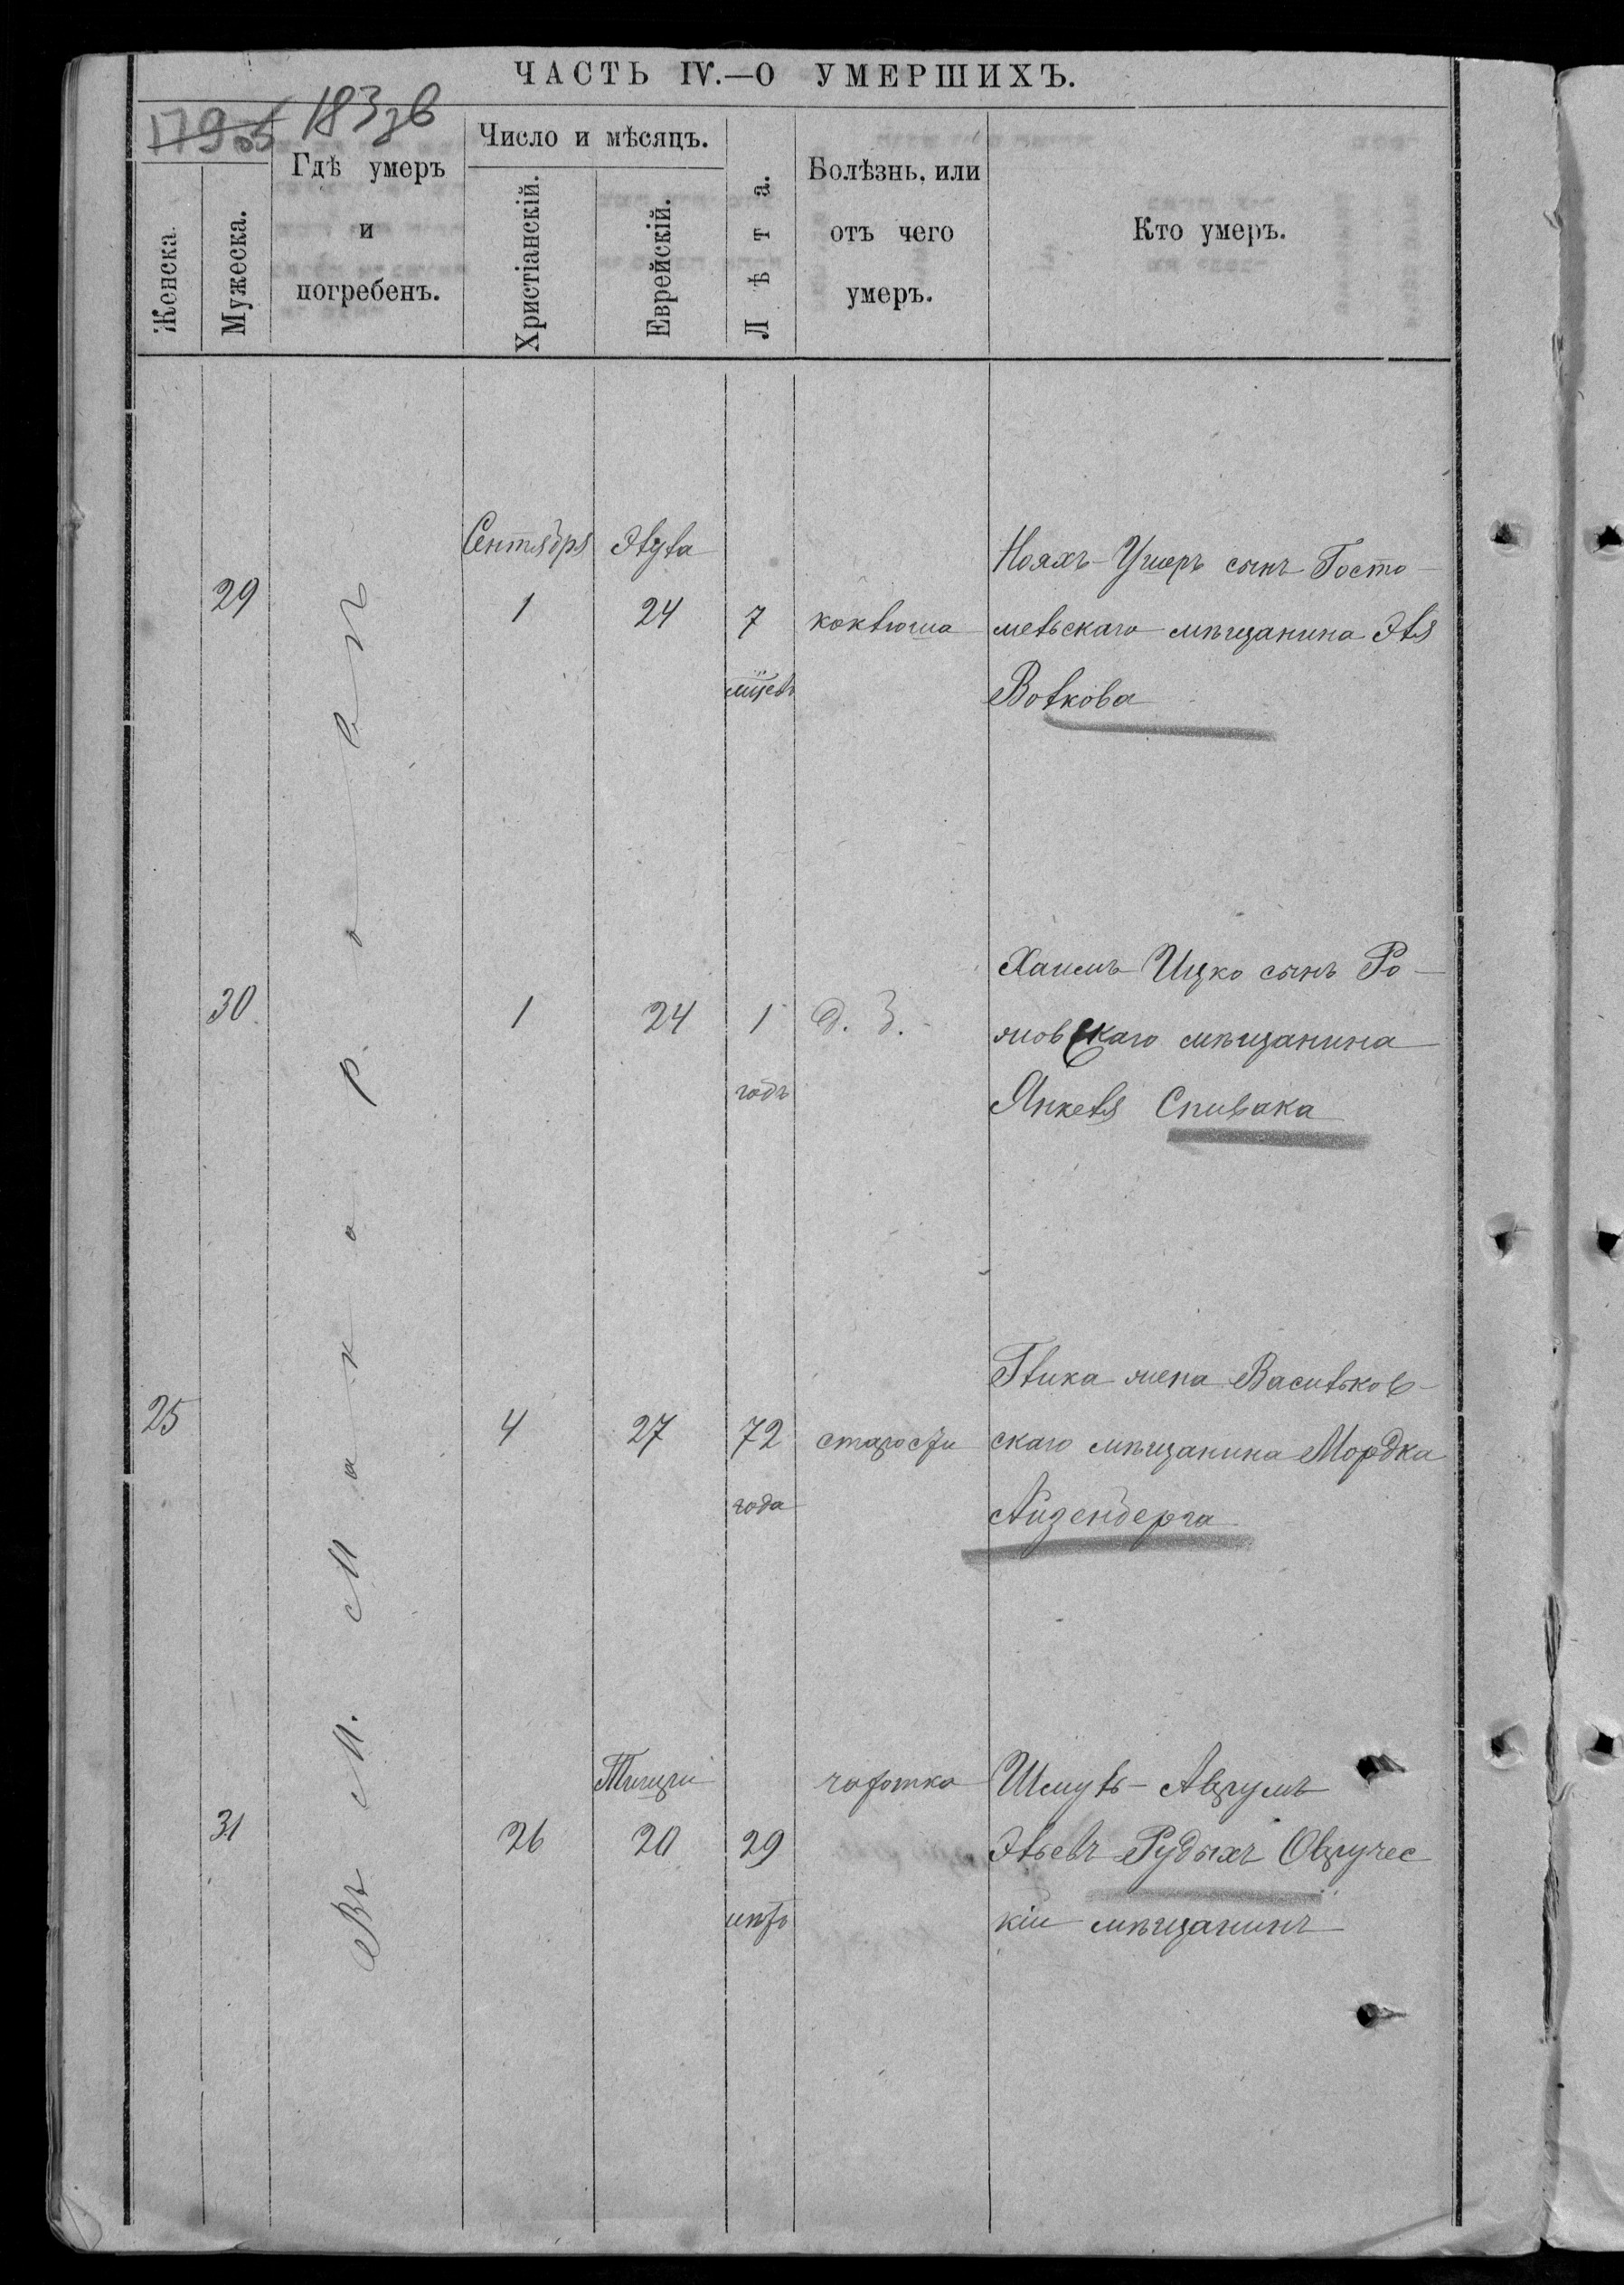 ЧАСТЬ IV.—О УМЕРШИХЪ.
179об 183зв
Женска.
Мужеска.
Гдѣ умеръ
и
погребенъ.
Число и мѣсяцъ.
Христіанскій.
Еврейскій.
Лѣта.
Болѣзнь, или
отъ чего
умеръ.
Кто умеръ.
Въ М. Макаровѣ
Сентября Элула
29 1 24 7 коклюша
мѣсев
Нояхъ-Ушеръ сынъ Госто-
мельскаго мѣщанина Эля
Волкова
30 1 24 1 д. З.
годъ
Хаимъ Ицко сынъ Ро-
мовскаго мѣщанина
Янкеля Спивака
25 4 27 72 старости
года
Глика жена Васильков-
скаго мѣщанина Мордка
Айзенберга
Тишри
31 26 20 29 чахотка
лѣтъ
Шмуль-Аврумъ
Эльевъ Рудыхъ Овручес
кій мѣщанинъ